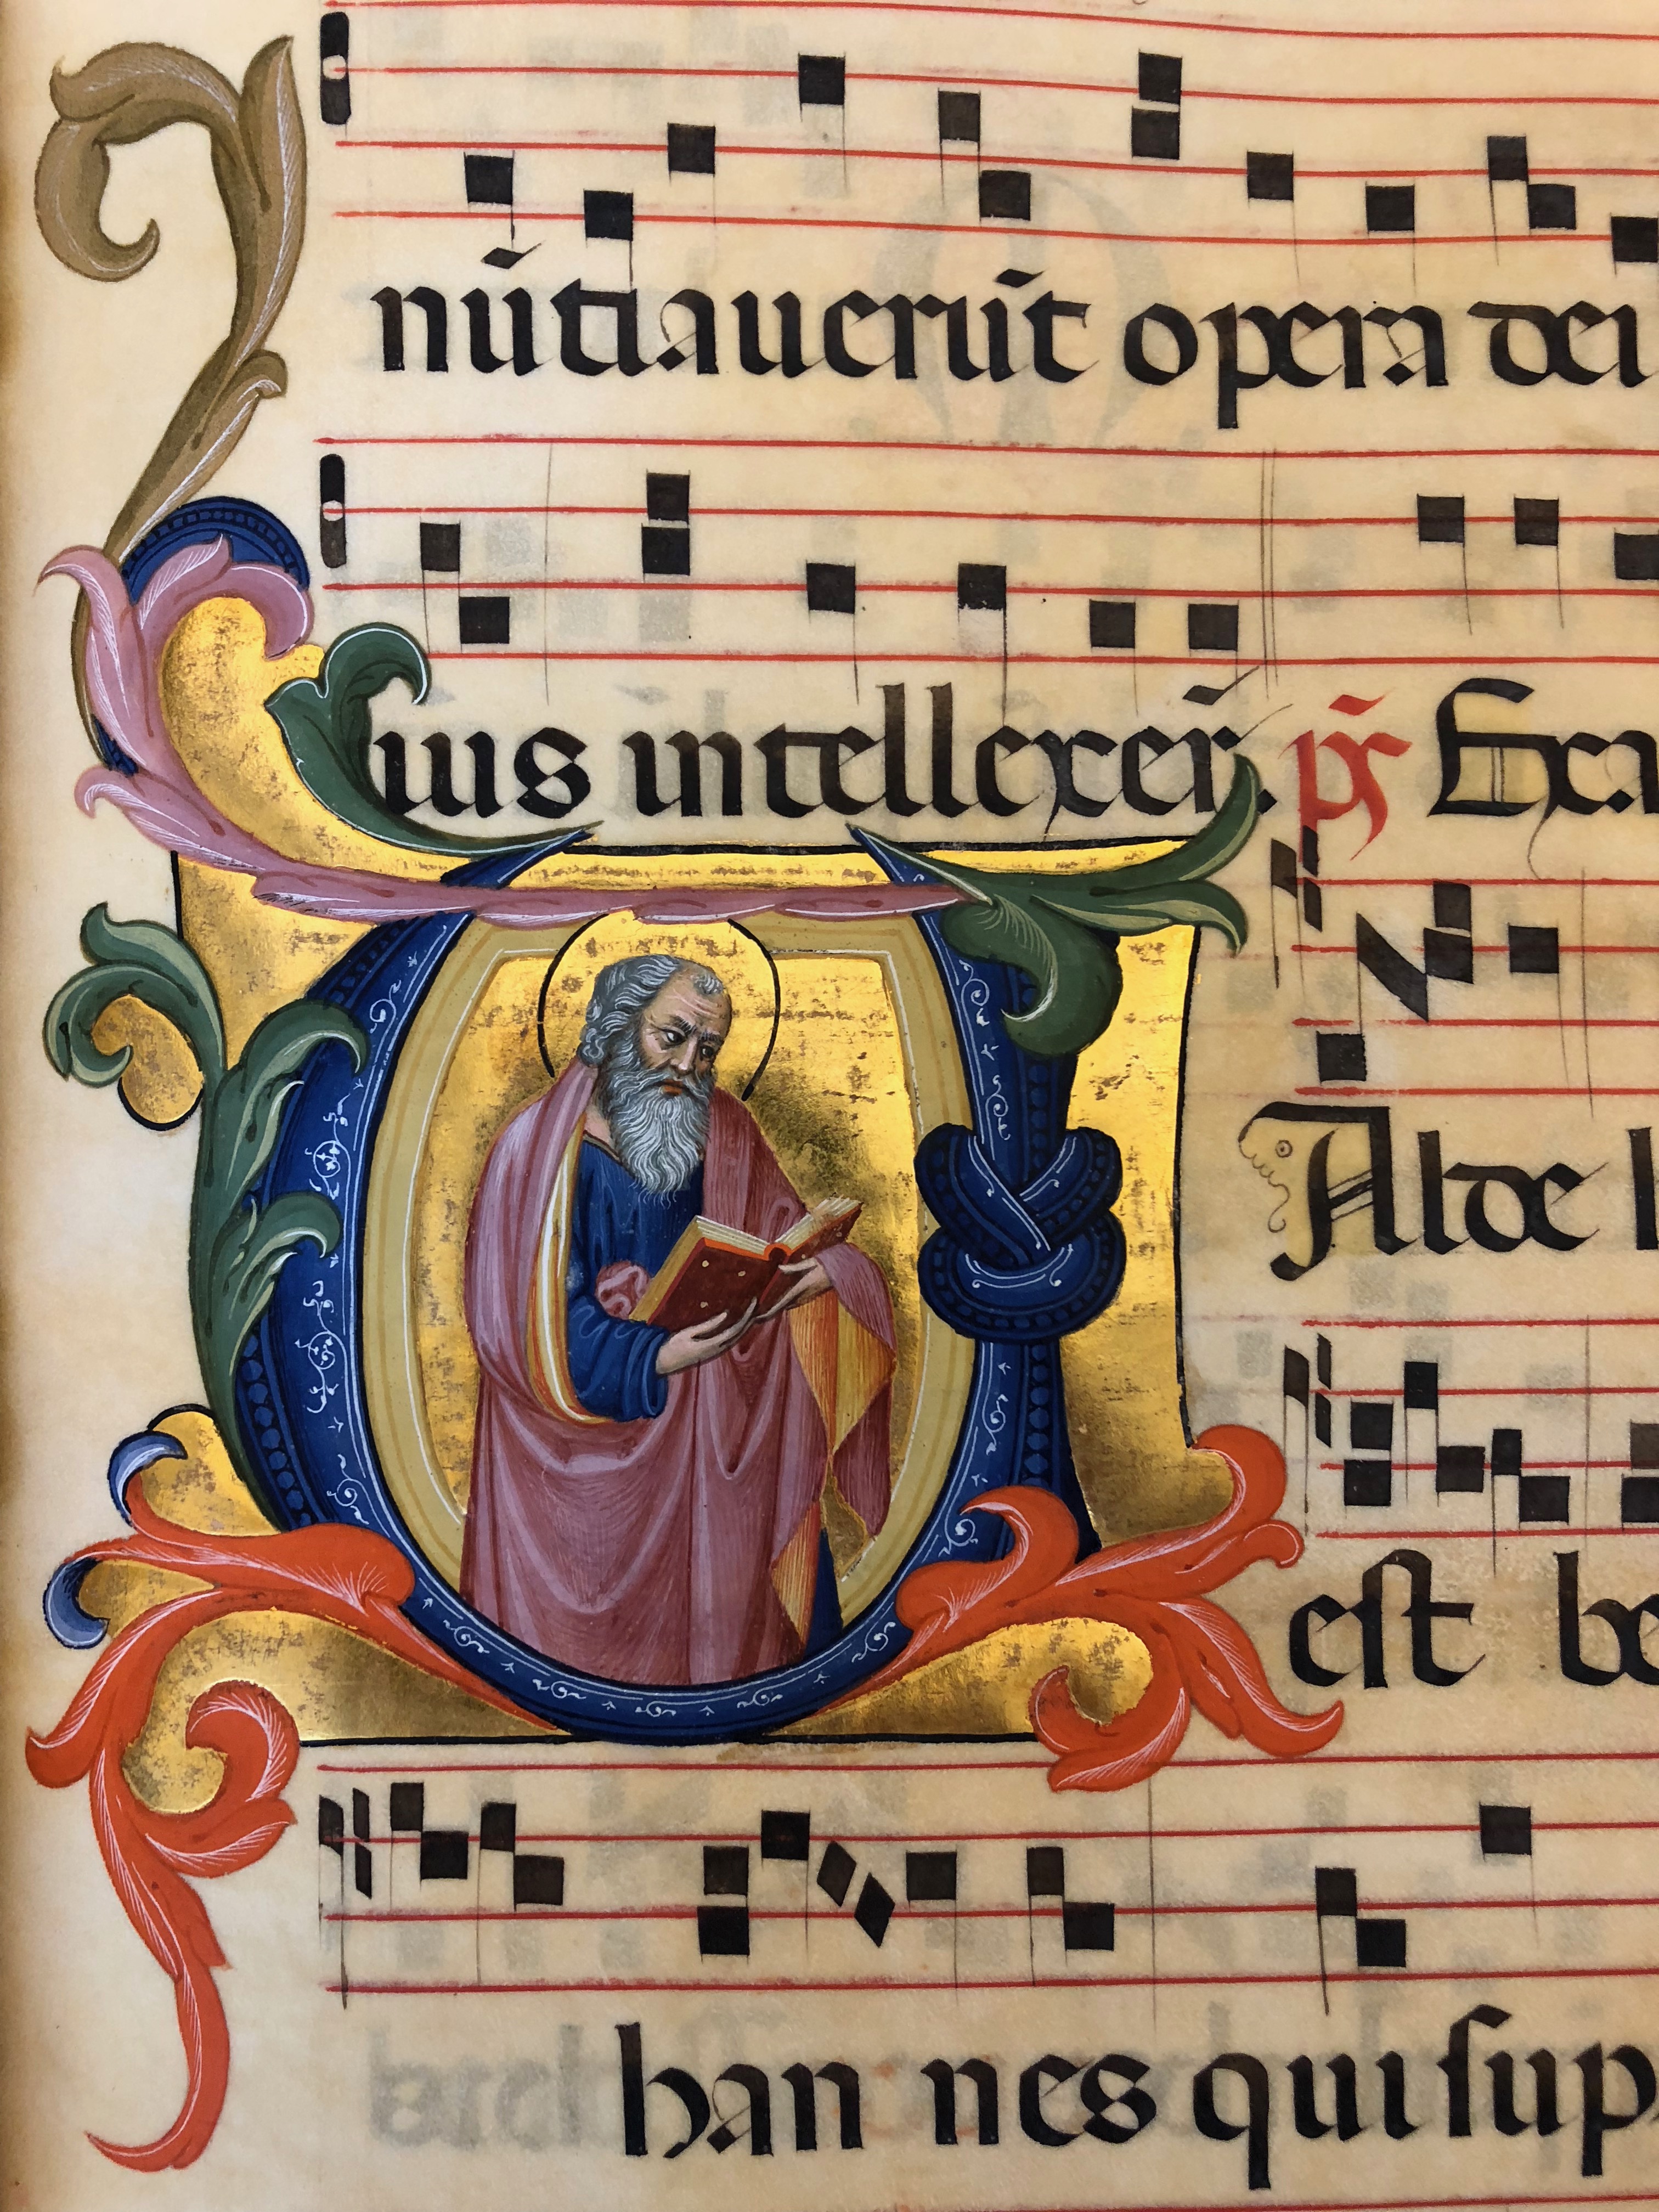 nũtiauerũt opera dei
eius intellexer̃. p̃s Exa
VAlde
est be
han nes qui sup